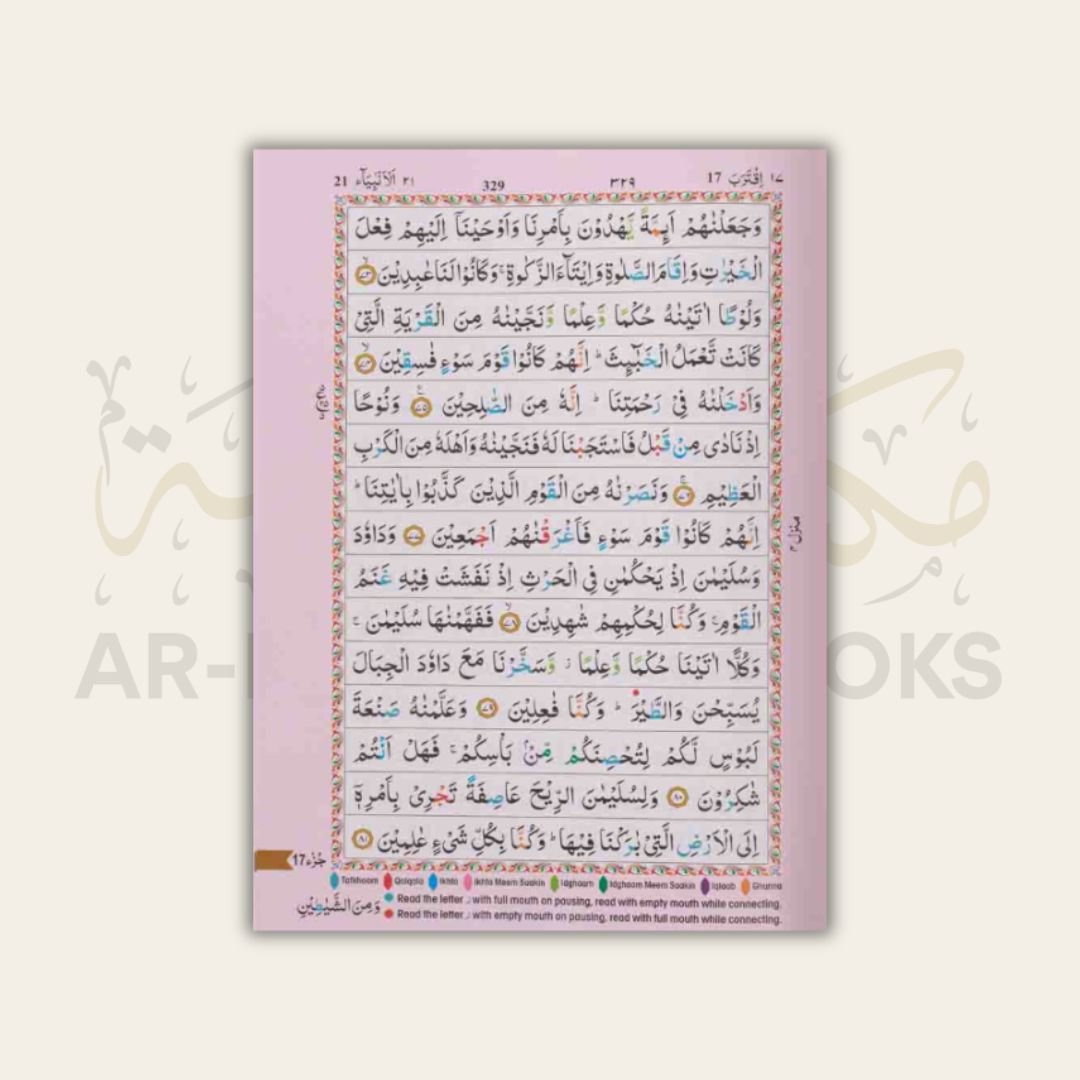 ١٧ اِقْتَرَبَ 17 ٣٢٩ 329 ٢١ اَلْاَنْۢبِيَآء 21
وَجَعَلْنٰهُمْ اَىِٕمَّةً يَّهْدُوْنَ بِاَمْرِنَا وَاَوْحَيْنَاۤ اِلَيْهِمْ فِعْلَ
الْخَيْرٰتِ وَاِقَامَ الصَّلٰوةِ وَاِيْتَآءَ الزَّكٰوةِ ۚ وَكَانُوْا لَنَا عٰبِدِيْنَ ۙ۝۷۳
وَلُوْطًا اٰتَيْنٰهُ حُكْمًا وَّعِلْمًا وَّنَجَّيْنٰهُ مِنَ الْقَرْيَةِ الَّتِيْ
كَانَتْ تَّعْمَلُ الْخَبٰٓىِٕثَ ؕ اِنَّهُمْ كَانُوْا قَوْمَ سَوْءٍ فٰسِقِيْنَ ۙ۝۷۴
وَاَدْخَلْنٰهُ فِيْ رَحْمَتِنَا ؕ اِنَّهٗ مِنَ الصّٰلِحِيْنَ ۠۝۷۵ وَنُوْحًا
اِذْ نَادٰى مِنْ قَبْلُ فَاسْتَجَبْنَا لَهٗ فَنَجَّيْنٰهُ وَاَهْلَهٗ مِنَ الْكَرْبِ
الْعَظِيْمِ ۚ۝۷۶ وَنَصَرْنٰهُ مِنَ الْقَوْمِ الَّذِيْنَ كَذَّبُوْا بِاٰيٰتِنَا ؕ
اِنَّهُمْ كَانُوْا قَوْمَ سَوْءٍ فَاَغْرَقْنٰهُمْ اَجْمَعِيْنَ ۝۷۷ وَدَاوٗدَ
وَسُلَيْمٰنَ اِذْ يَحْكُمٰنِ فِي الْحَرْثِ اِذْ نَفَشَتْ فِيْهِ غَنَمُ
الْقَوْمِ ۚ وَكُنَّا لِحُكْمِهِمْ شٰهِدِيْنَ ۙ۝۷۸ فَفَهَّمْنٰهَا سُلَيْمٰنَ ۚ
وَكُلًّا اٰتَيْنَا حُكْمًا وَّعِلْمًا ؗ وَّسَخَّرْنَا مَعَ دَاوٗدَ الْجِبَالَ
يُسَبِّحْنَ وَالطَّيْرَ ؕ وَكُنَّا فٰعِلِيْنَ ۝۷۹ وَعَلَّمْنٰهُ صَنْعَةَ
لَبُوْسٍ لَّكُمْ لِتُحْصِنَكُمْ مِّنْۢ بَاْسِكُمْ ۚ فَهَلْ اَنْتُمْ
شٰكِرُوْنَ ۝۸۰ وَلِسُلَيْمٰنَ الرِّيْحَ عَاصِفَةً تَجْرِيْ بِاَمْرِهٖۤ
اِلَى الْاَرْضِ الَّتِيْ بٰرَكْنَا فِيْهَا ؕ وَكُنَّا بِكُلِّ شَيْءٍ عٰلِمِيْنَ ۝۸۱
منزل ٤
جُزْء 17
Tafkheem Qalqala Ikhfa Ikhfa Meem Saakin Idghaam Idghaam Meem Saakin Iqlaab Ghunna
Read the letter ر with full mouth on pausing, read with empty mouth while connecting.
Read the letter ر with empty mouth on pausing, read with full mouth while connecting.
وَمِنَ الشَّيٰطِيْنِ